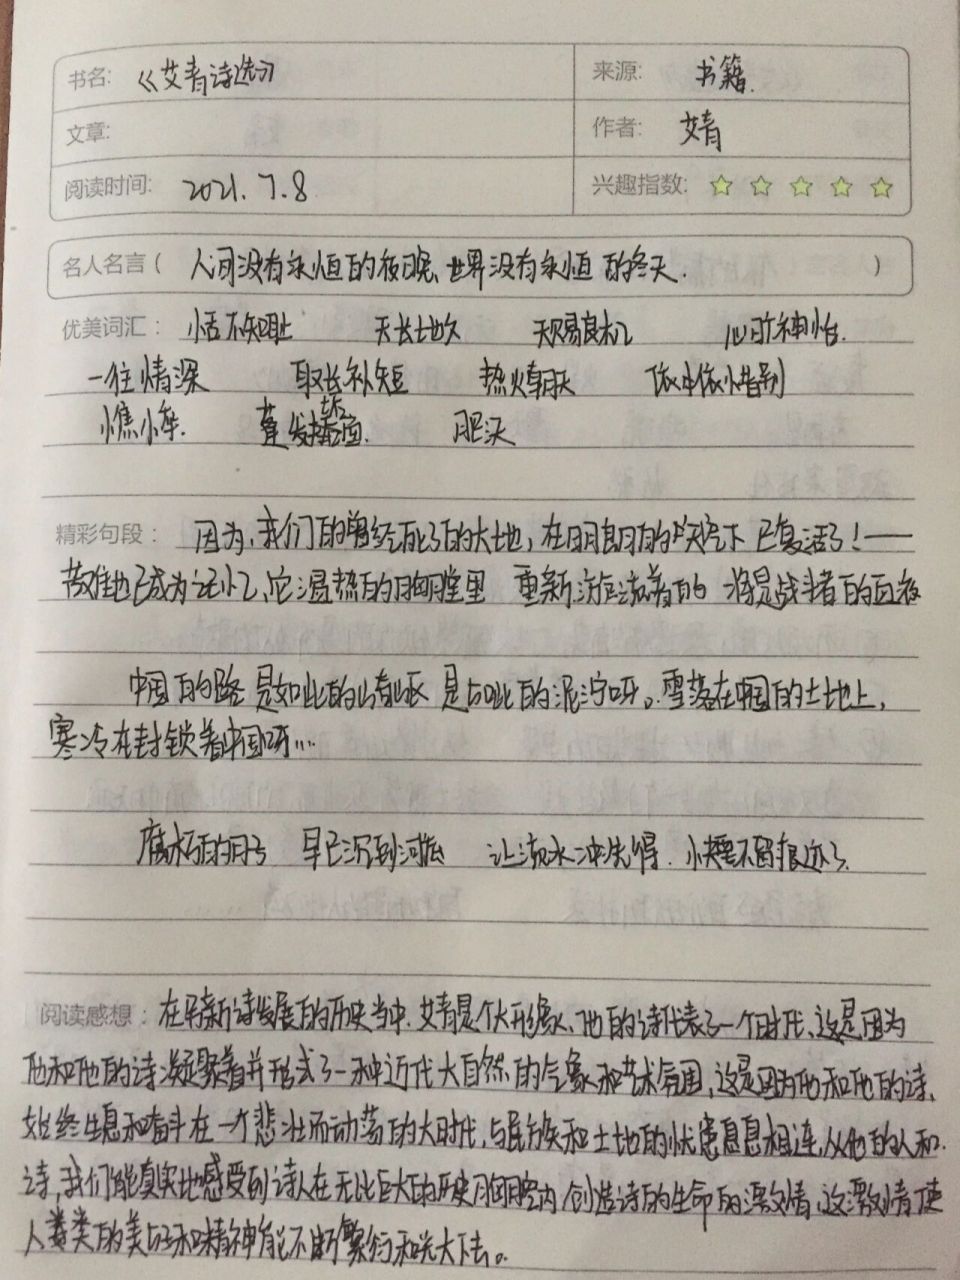 书名: 《艾青诗选》 来源: 书籍.
文章: 作者: 艾青
阅读时间: 2021.7.8 兴趣指数:
名人名言( 人间没有永恒的夜晚、世界没有永恒的冬天. )
优美词汇: 恬不知耻 天长地久 天赐良机 心旷神怡.
一往情深 取长补短 热火朝天 依依惜别
憔悴. 蓬发垢面.
精彩句段: 因为,我们的曾经死了的大地,在明朗的天空下 已复活了!——
苦难也已成为记忆,它温热的胸膛里 重新漩流着的 将是战斗者的血液
中国的路 是如此的崎岖 是如此的泥泞呀。雪落在中国的土地上,
寒冷在封锁着中国呀...
腐朽的日子 早已沉到河底 让流水冲洗得 快要不留痕迹了.
阅读感想: 在新诗发展的历史当中,艾青是个大形象、他的诗代表了一个时代、这是因为
他和他的诗凝聚着并形式了一种近代大自然的气象和艺术氛围,这是因为他和他的诗、
始终生息和奋斗在一个悲壮而动荡的大时代,与民族和土地的忧患息息相连,从他的人和
诗,我们能真实地感受到诗人在无比巨大的历史胸膛内,创造诗的生命的激情、这激情使
人类的美好和精神能不断繁衍和光大下去。